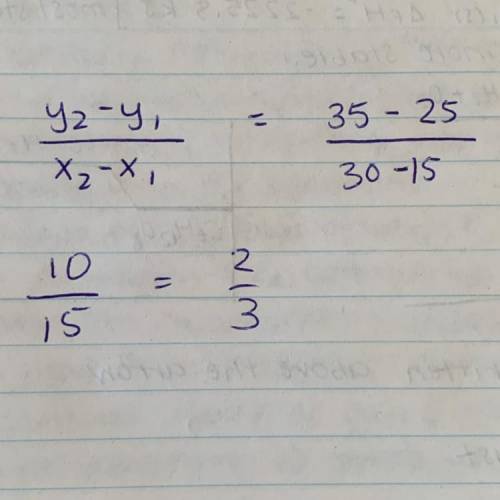 y₂-y₁ / x₂-x₁ = 35-25 / 30-15
10/15 = 2/3